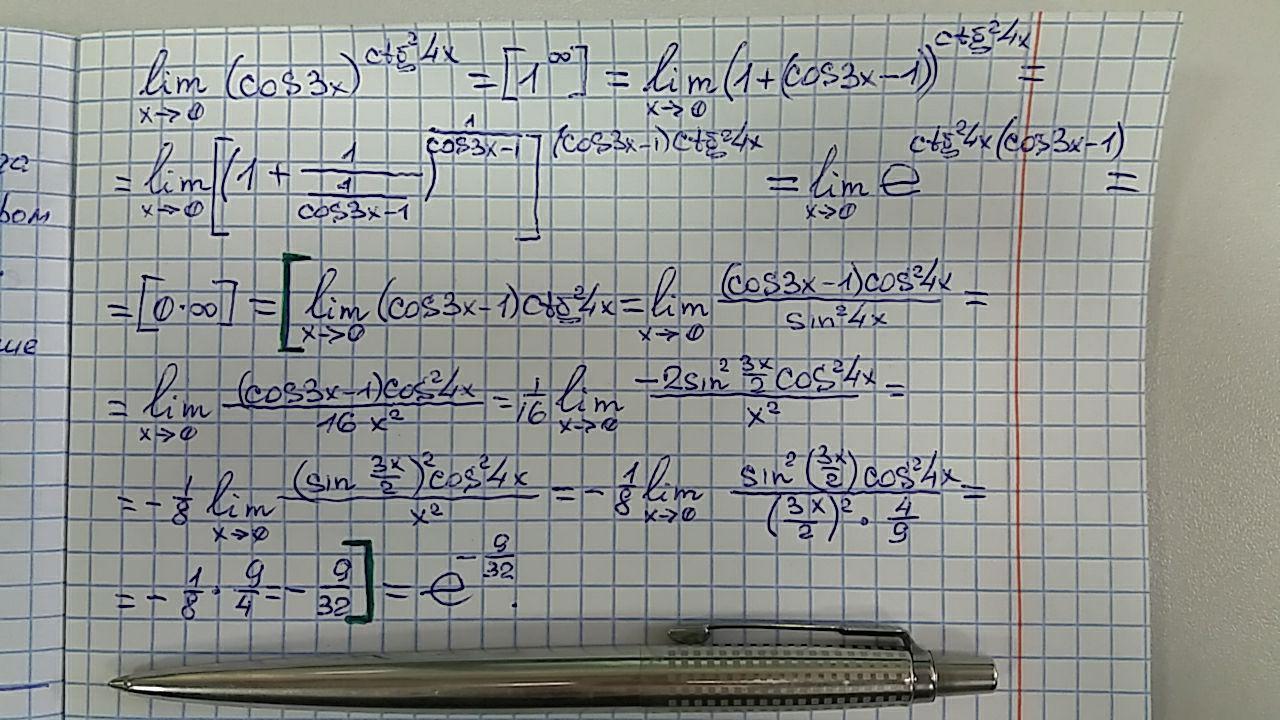 lim x→0 (cos3x)^(ctg²4x) = [1^∞] = lim x→0 (1+(cos3x-1))^(ctg²4x) =
= lim x→0 [(1 + 1/(1/(cos3x-1)))^(1/(cos3x-1))]^((cos3x-1)ctg²4x) = lim x→0 e^(ctg²4x(cos3x-1)) =
= [0·∞] = [lim x→0 (cos3x-1)ctg²4x = lim x→0 (cos3x-1)cos²4x/sin²4x =
= lim x→0 (cos3x-1)cos²4x/16x² = 1/16 lim x→0 -2sin² 3x/2 cos²4x/x² =
= - 1/8 lim x→0 (sin 3x/2)² cos²4x/x² = - 1/8 lim x→0 sin²(3x/2)cos²4x/((3x/2)² · 4/9) =
= - 1/8 · 9/4 = - 9/32] = e^(-9/32).